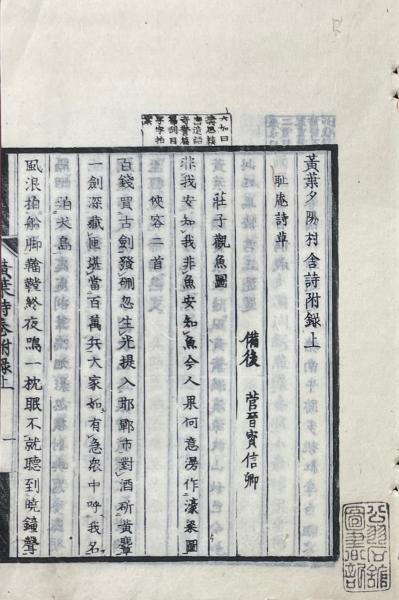 黃葉夕陽村舍詩附録上
恥庵詩草
備後　菅晉寳信卿
莊子觀魚圖
非我安知我非魚安知魚今人果何意漫作濠梁圖
俠客二首
百錢買古劍發硎忽生光提入邯鄲市對酒斫黃
一劍深藏匣堪當百萬兵大家如有急衆中呼我名
泊犬島
風浪拍船脚鞺鞳終夜鳴一枕眠不就聽到曉鐘聲
黃葉詩卷附録上
一